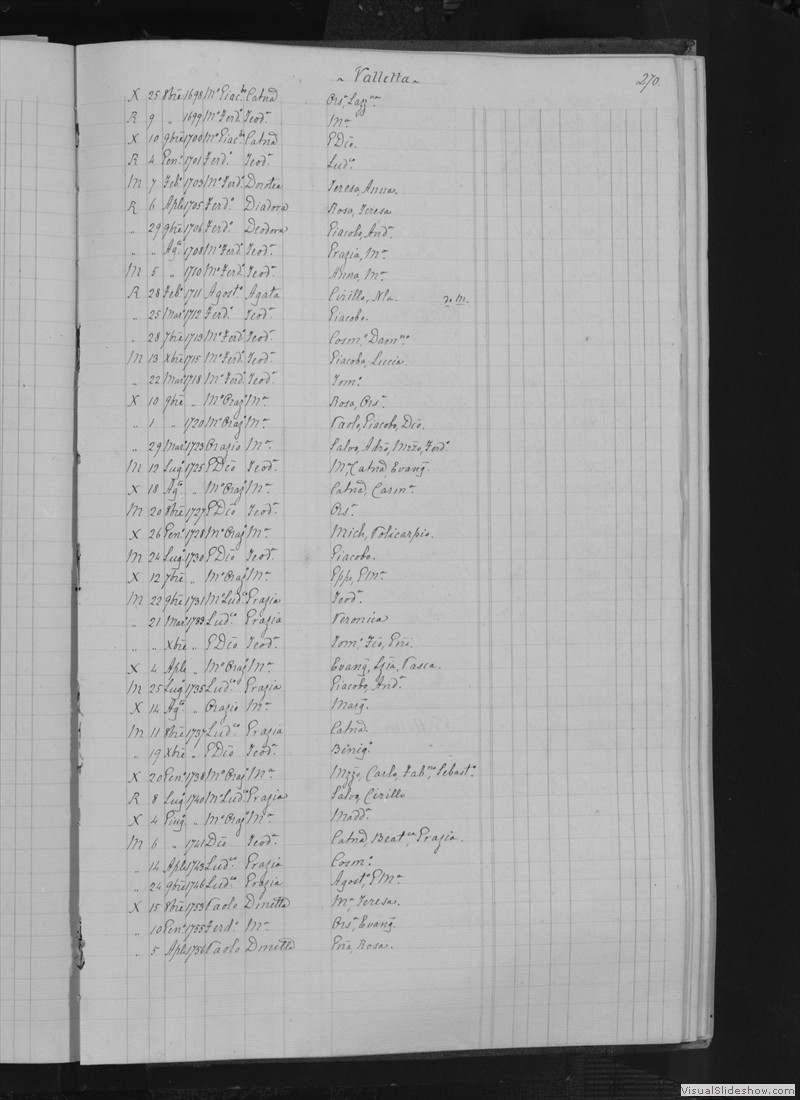 ~ Valletta ~
270.
X 25 8bre 1698 Mo Giacbo Catnd Orsa Lazzro
R 9 " 1699 Mo Ferdo Teoda Ma
X 10 9bre 1700 Mo Giacbo Catnd GDio
R 4 Geno 1701 Ferdo Teoda Ludco
M 7 Febo 1703 Mo Ferdo Dorotea Teresa, Anna
R 6 Aple 1705 Ferdo Diadora Rosa, Teresa
" 29 9bre 1706 Ferdo Deodora Giacobo, Anda
" " Agto 1708 Mo Ferdo Teoda Grazia, Ma
M 5 " 1710 Mo Ferdo Teoda Anna, Ma
R 28 Febo 1711 Agosto Agata Cirillo, Nla. 2o m.
" 25 Mar 1712 Ferdo Teoda Giacobo.
" 28 7bre 1713 Mo Ferdo Teoda Cosmo Damno
M 13 Xbre 1715 Mo Ferdo Teoda Giacoba, Lucia
" 22 Mar 1718 Mo Ferdo Teoda Toma
X 10 9bre " Mo Orazo Ma Rosa, Orsa
" 1 " 1720 Mo Orazo Ma Paolo, Giacobo, Dio.
" 29 Mar 1723 Orazio Ma Salvo, Adro, Mzzo, Ferdo
M 12 Lugo 1725 GDio Teoda Ma, Catnd, Evang.
X 18 Ago " Mo Orazo Ma Catnd, Carma
M 20 8bre 1727 GDio Teoda Orsa
X 26 Geno 1728 Mo Orazo Ma Mich, Policarpio.
M 24 Lugo 1730 GDio Teoda Giacobo.
X 12 7bre " Mo Orazo Ma Gpp, GMa
M 22 9bre 1731 Mo Ludco Grazia Teoda
" 21 Mar 1733 Ludco Grazia Veronica
" " Xbre " GDio Teoda Toma
X 4 Aple " Mo Orazo Ma Evang, Pasca.
M 25 Lugo 1735 Ludco Grazia Giacobo, Anda
X 14 Ago " Orazio Ma Marg.
M 11 8bre 1737 Ludco Grazia Catnd.
" 19 Xbre " GDio Teoda Benigo
X 20 Geno 1738 Mo Orazo Ma Mzzo, Carlo, Fabno, Sebasto
R 8 Lugo 1740 Mo Ludco Grazia Salvo, Cirillo
X 4 Giug " Mo Orazo Ma Madda
M 6 " 1741 Dio Teoda Catnd, Beatca, Grazia.
" 14 Aple 1743 Ludco Grazia Cosmo
" 24 9bre 1746 Ludco Grazia Agosto, GMa
X 15 8bre 1753 Paolo Dmettd Ma Teresa.
" 10 Geno 1755 Ferdo Ma Orsa, Evang.
" 5 Aple 1756 Paolo Dmettd Rosa.
VisualSlideshow.com